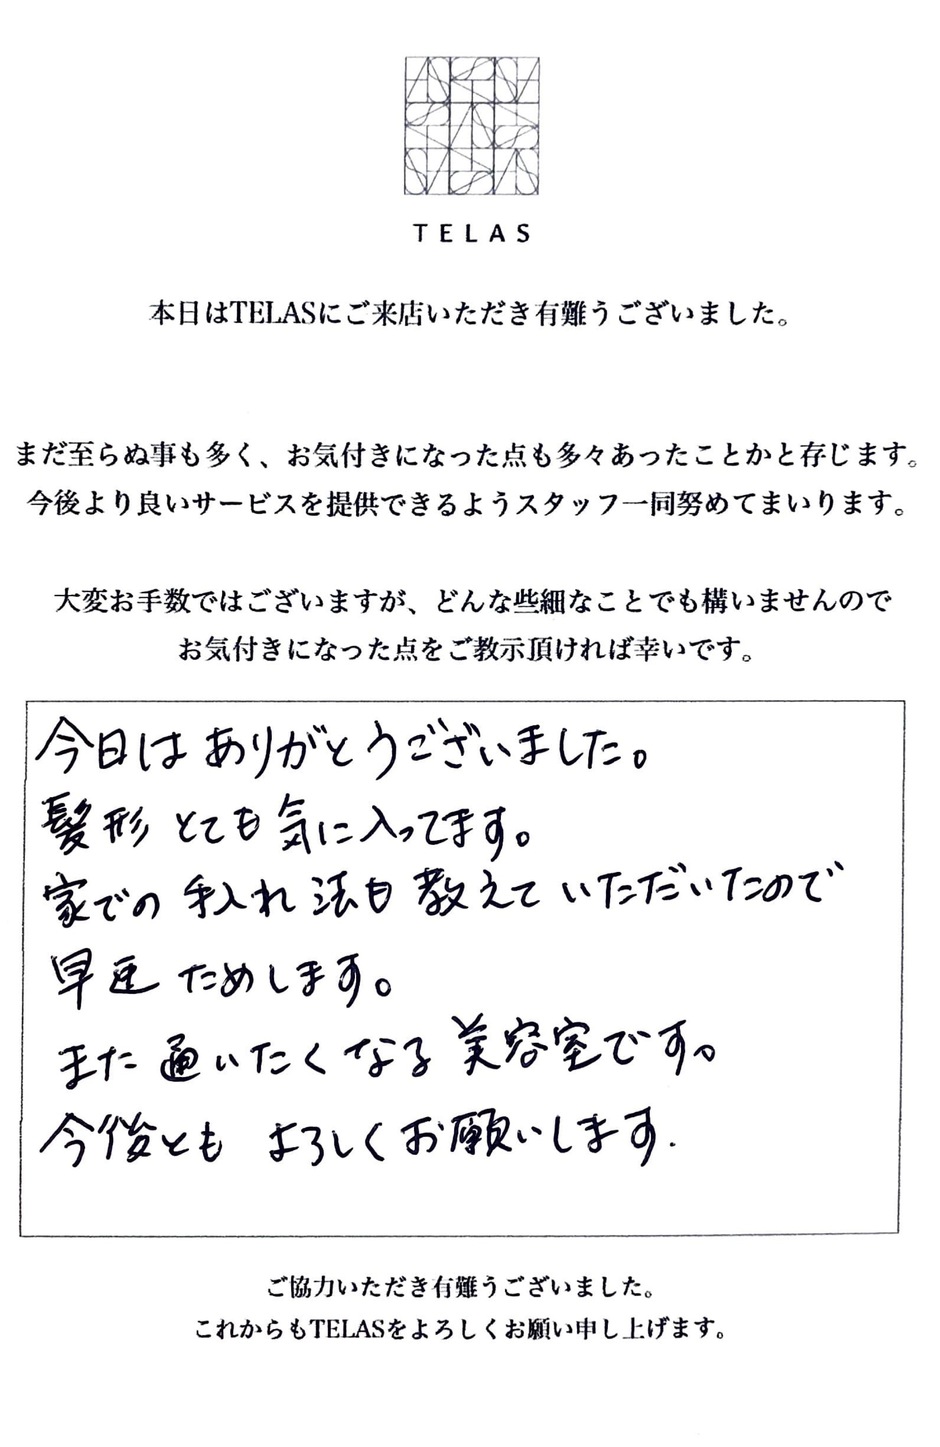 TELAS
本日はTELASにご来店いただき有難うございました。
まだ至らぬ事も多く、お気付きになった点も多々あったことかと存じます。
今後より良いサービスを提供できるようスタッフ一同努めてまいります。
大変お手数ではございますが、どんな些細なことでも構いませんので
お気付きになった点をご教示頂ければ幸いです。
今日はありがとうございました。
髪形とても気に入ってます。
家での手入れ法も教えていただいたので
早速ためします。
また通いたくなる美容室です。
今後ともよろしくお願いします.
ご協力いただき有難うございました。
これからもTELASをよろしくお願い申し上げます。